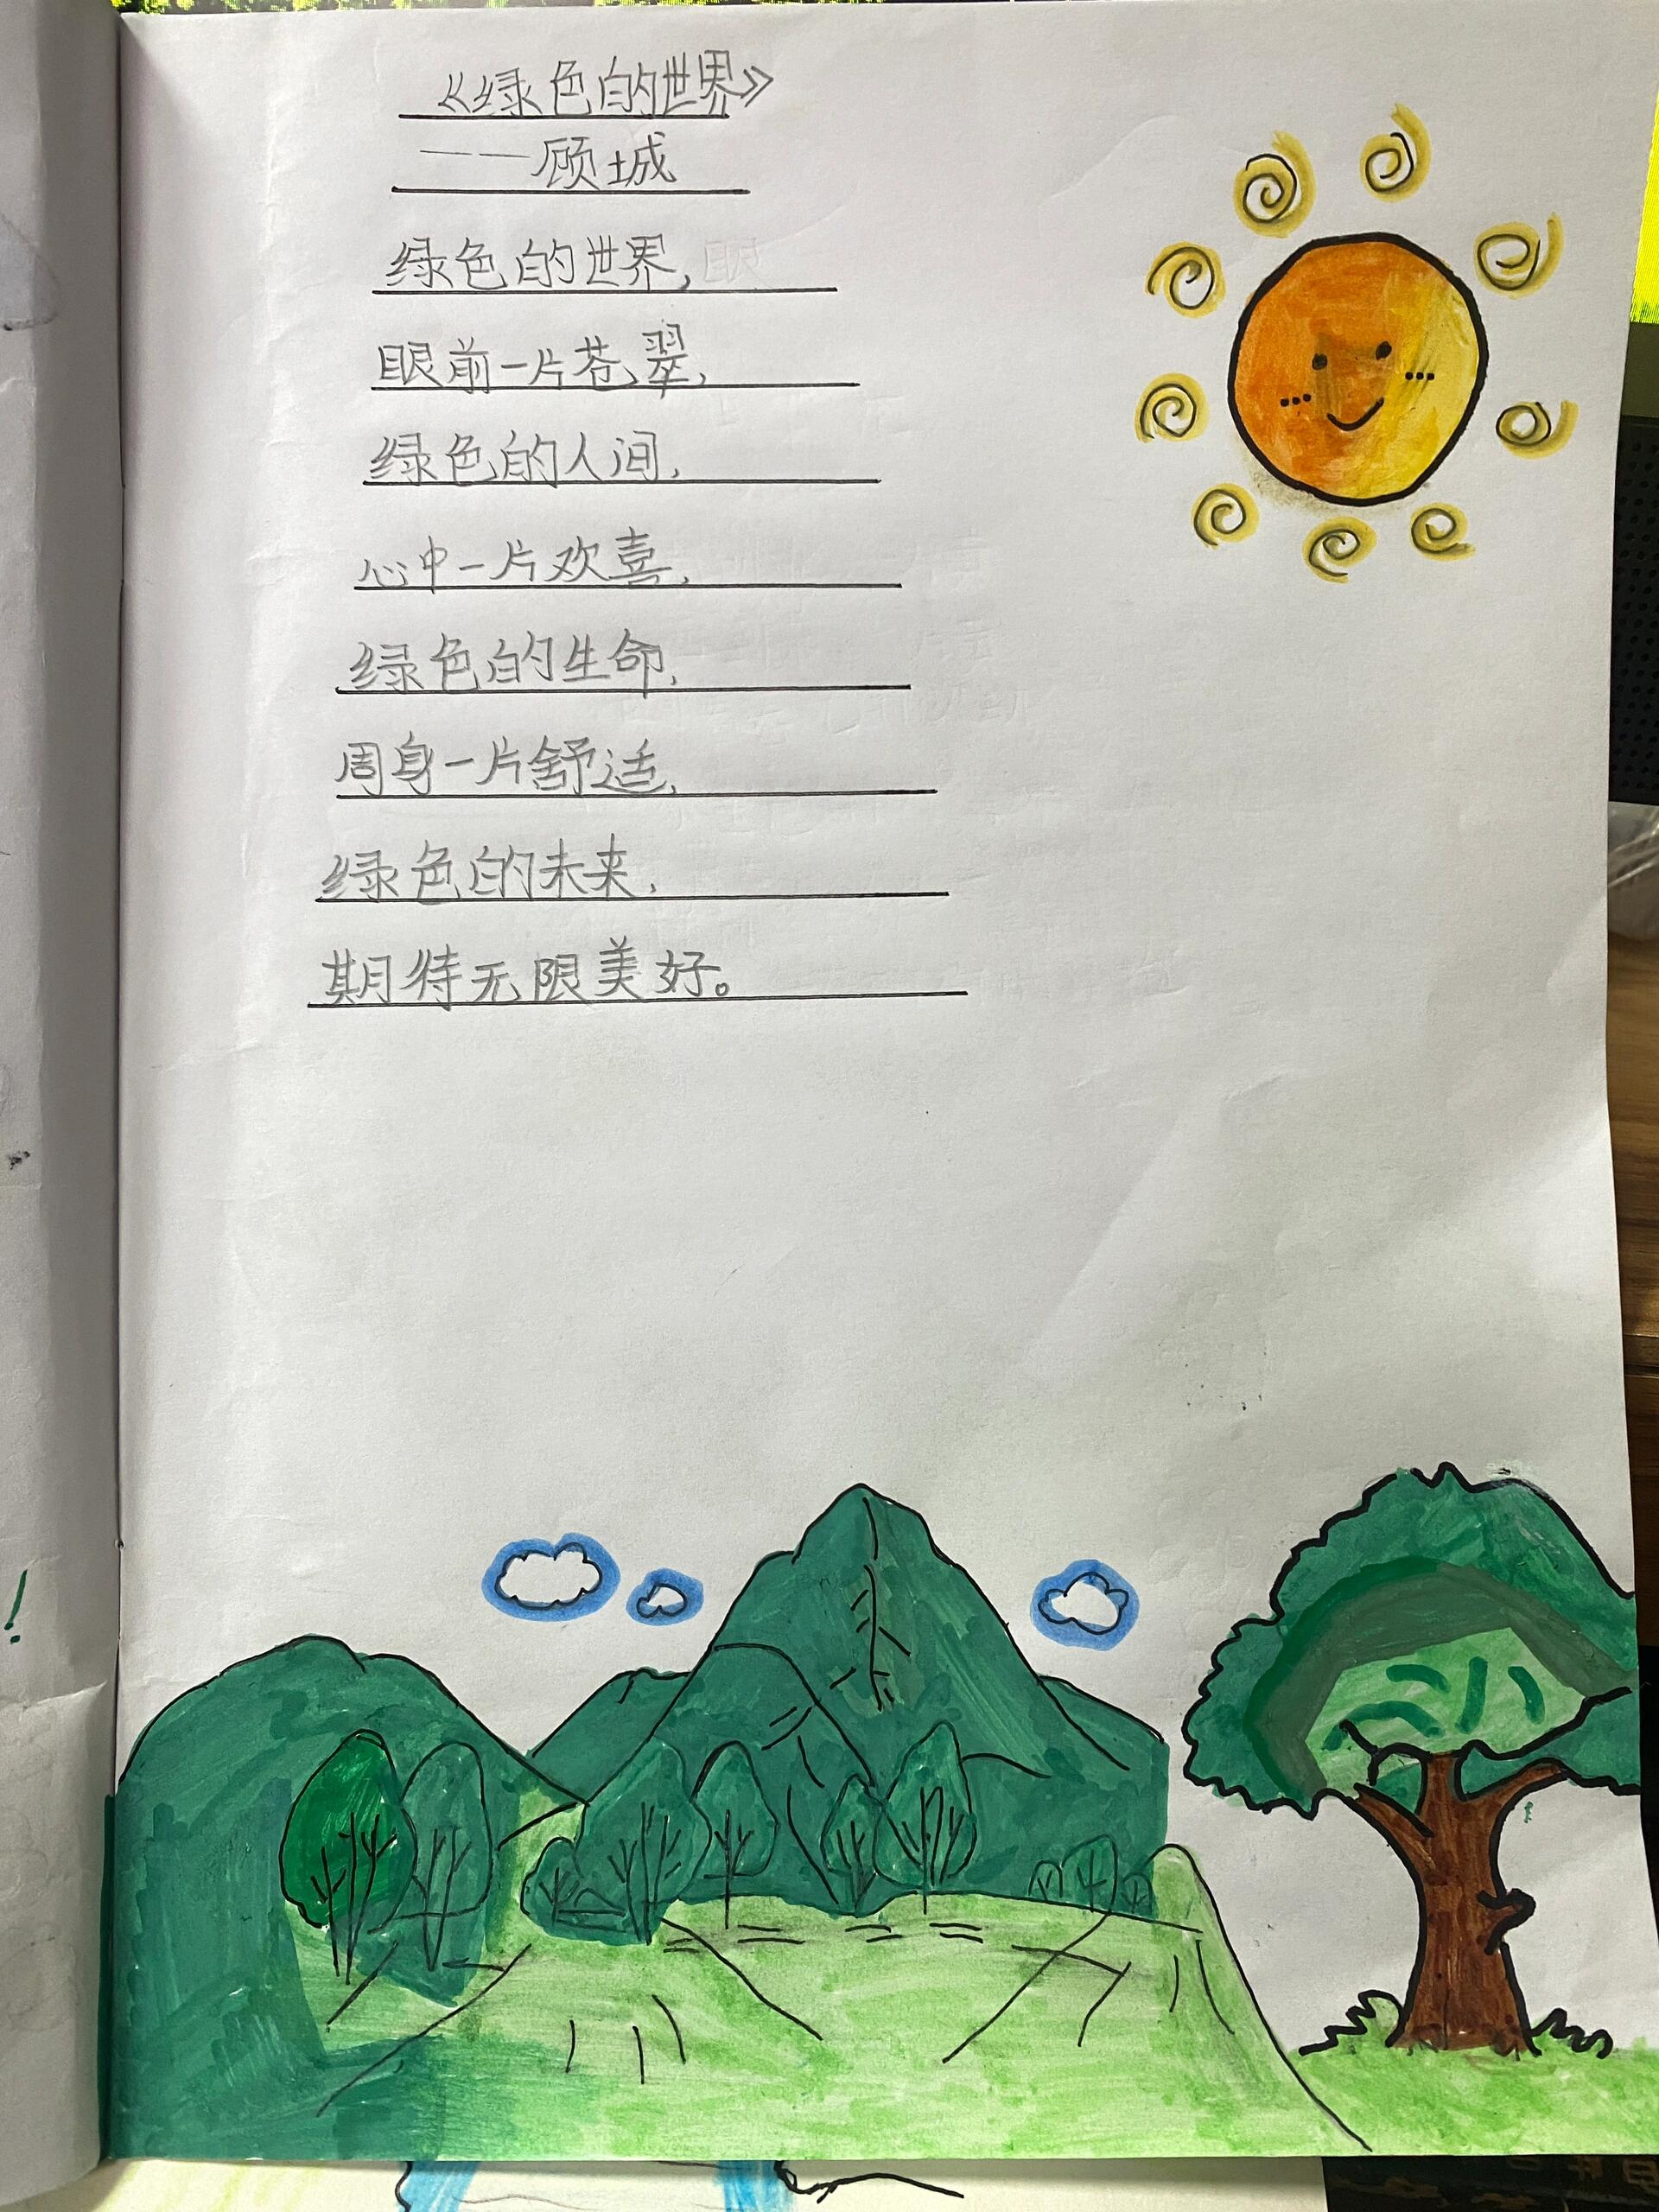 《绿色的世界》
——顾城
绿色的世界,
眼前一片苍翠,
绿色的人间,
心中一片欢喜,
绿色的生命,
周身一片舒适,
绿色的未来,
期待无限美好。
!